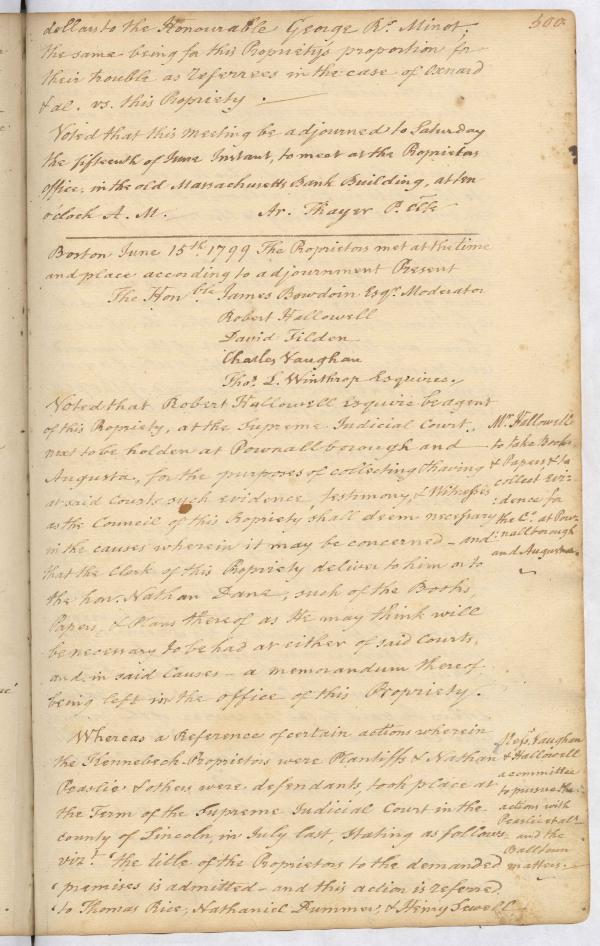 500.
dollars to the Honourable George Rd. Minot,
the same being for this Propriety's proportion for
their trouble as Referrees in the case of Oxnard
& al. vs. this Propriety.
Voted that this meeting be adjourned to Saturday
the fifteenth of June Instant, to meet at the Proprietors
office, in the old Massachusetts Bank Building, at ten
o'clock A. M. Ar. Thayer P. Clk
Boston June 15th. 1799 The Proprietors met at the time
and place according to adjournment Present
The Honble James Bowdoin Esqr. Moderator
Robert Hallowell
David Tilden
Charles Vaughan
Thos. L. Winthrop Esquires.
Voted that Robert Hallowell Esquire be agent
of this Propriety, at the Supreme Judicial Court,
next to be holden at Pownallborough and
Augusta, for the purposes of collecting & having
at said Courts such evidence, testimony, & Witnesses
as the Council of this Propriety shall deem necessary
in the causes wherein it may be concerned – and
that the Clerk of this Propriety deliver to him or to
the hon. Nathan Dane, such of the Books,
Papers, & Plans thereof as He may think will
be necessary to be had at either of said Courts,
and in said Causes – a memorandum thereof
being left in the office of this Propriety.
Mr. Hallowell
to take Books
& Papers, & to
collect evi-
:dence for
the Ct. at Pow-
:nallborough
and Augusta.
Whereas a Reference of certain actions wherein
the Kennebeck Proprietors were Plantiffs & Nathan
Peaslie & others were defendants, took place at
the Term of the Supreme Judicial Court in the
county of Lincoln, in July last, stating as follows
vizt. the title of the Proprietors to the demanded
premises is admitted – and this action is referred
to Thomas Rice, Nathaniel Dummer, & Henry Sewell
Messs. Vaughan
& Hallowell
a committee
to pursue the
actions with
Peaslie et als
and the
Balltown
matters.